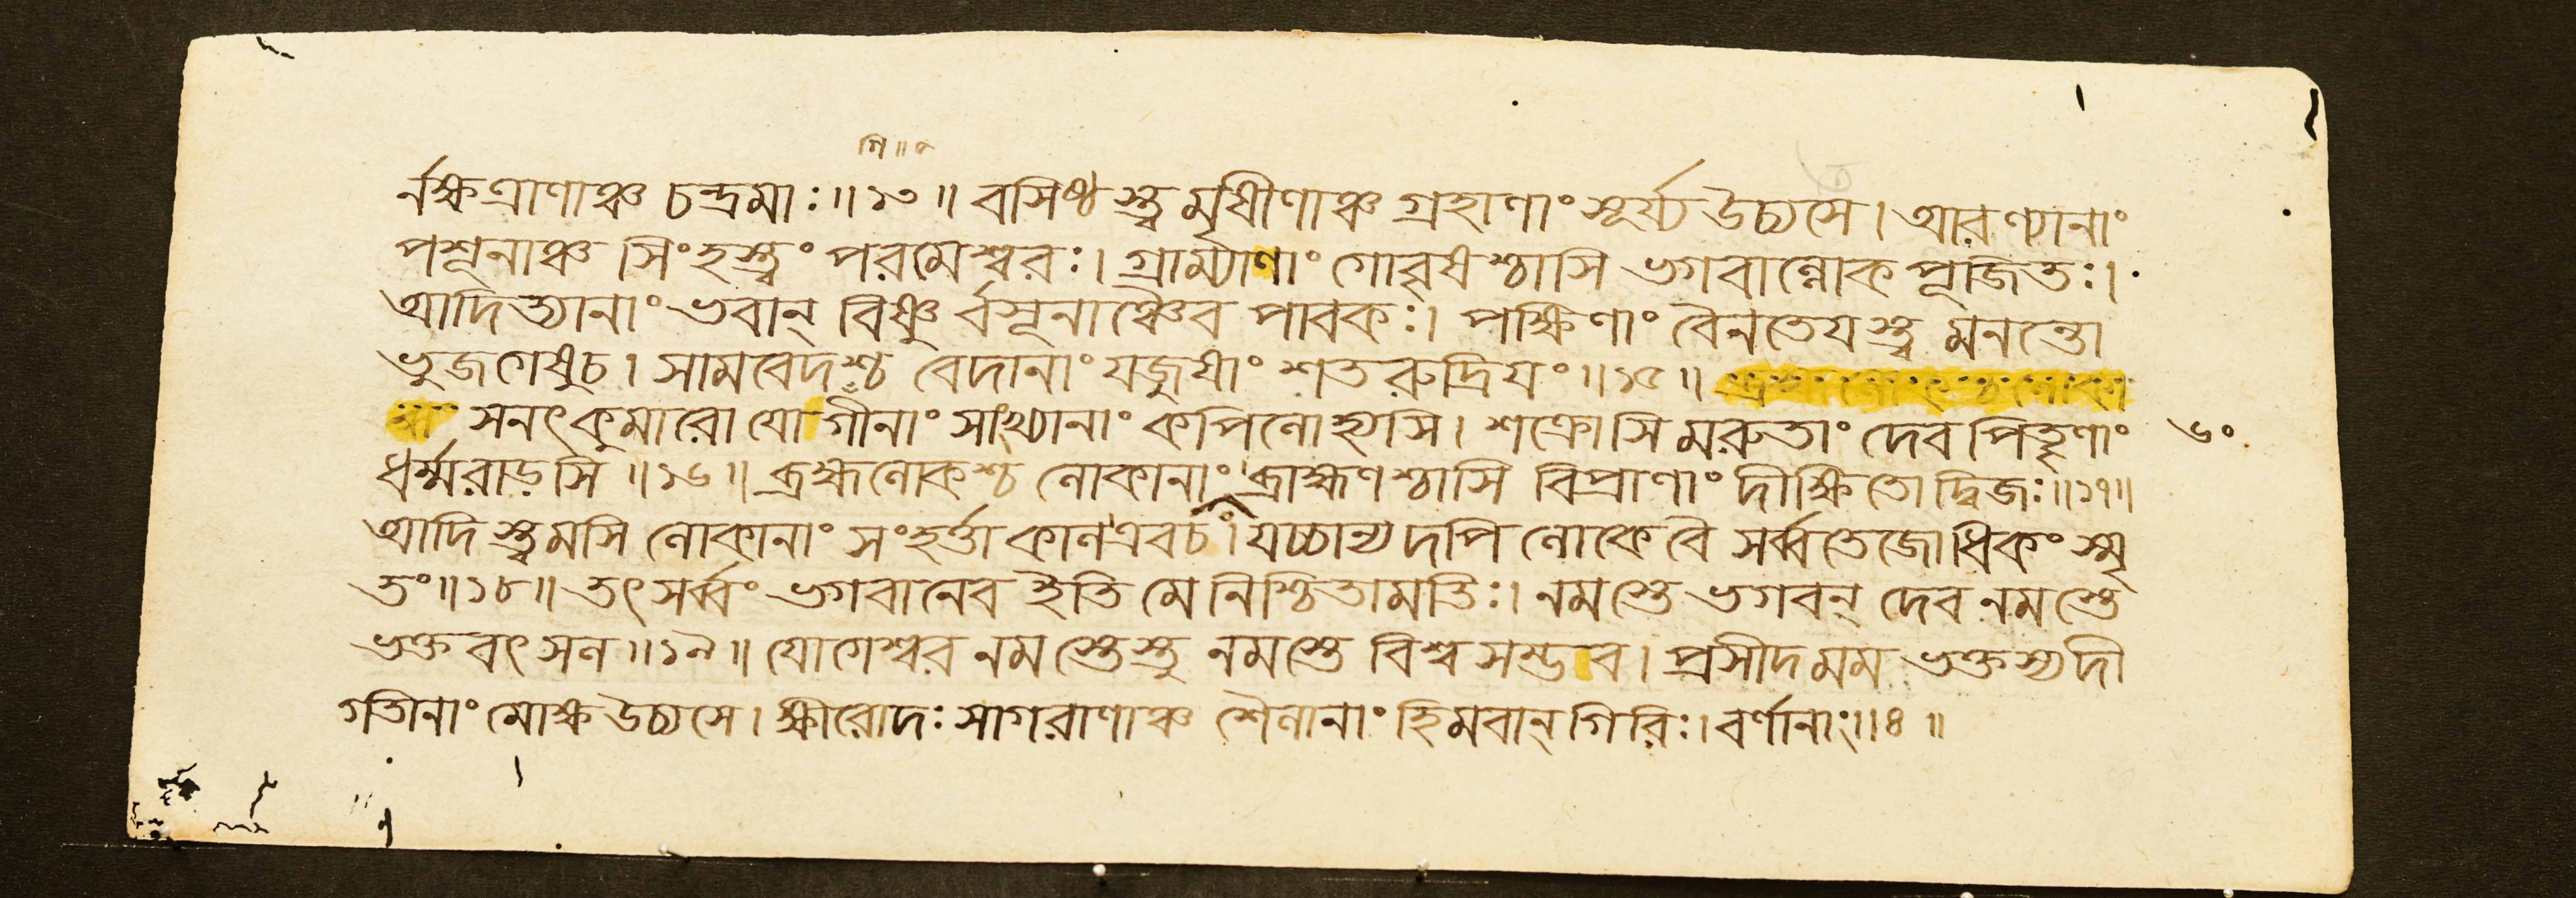 গি॥৹
র্নক্ষত্রাণাঞ্চ চন্দ্রমাঃ॥১৩॥ বসিষ্ঠস্ত্বমৃষীণাঞ্চ গ্রহাণাং সূর্য্য উচ্যসে। আরণ্যানাং
পশূনাঞ্চ সিংহস্ত্বং পরমেশ্বরঃ। গ্রাম্যাণাং গোবৃষশ্চাসি ভগবাল্লোকপূজিতঃ।
আদিত্যানাং ভবান্ বিষ্ণুর্ব্বসূনাঞ্চৈব পাবকঃ। পক্ষিণাং বৈনতেযস্ত্বমনন্তো
ভুজগেষুচ। সামবেদশ্চ বেদানাং যজুষাং শতরুদ্রিযং॥১৫॥
সনৎকুমারো যোগীনাং সাংখ্যানাং কপিলোহ্যসি। শক্রোসি মরুতাং দেব পিতৃণাং ৬০
ধর্ম্মরাড়সি॥১৬॥ ব্রহ্মলোকশ্চ লোকানাং ব্রাহ্মণশ্চাসি বিপ্রাণাং দীক্ষিতো দ্বিজঃ॥১৭॥
আদিস্ত্বমসি লোকানাং সংহর্ত্তা কালএবচ। যচ্চান্যদপি লোকেবৈ সর্ব্বতেজোধিকং স্মৃ
তং॥১৮॥ তৎ সর্ব্বং ভগবানেব ইতি মে নিশ্চিতামতিঃ। নমস্তে ভগবন্ দেব নমস্তে
ভক্তবৎসল॥১৯॥ যোগেশ্বর নমস্তেস্তু নমস্তে বিশ্বসম্ভব। প্রসীদ মম ভক্তস্য দী
গতীনাং মোক্ষ উচ্যসে। ক্ষীরোদঃ সাগরাণাঞ্চ শৈলানাং হিমবান্ গিরিঃ। বর্ণানাং॥৪॥